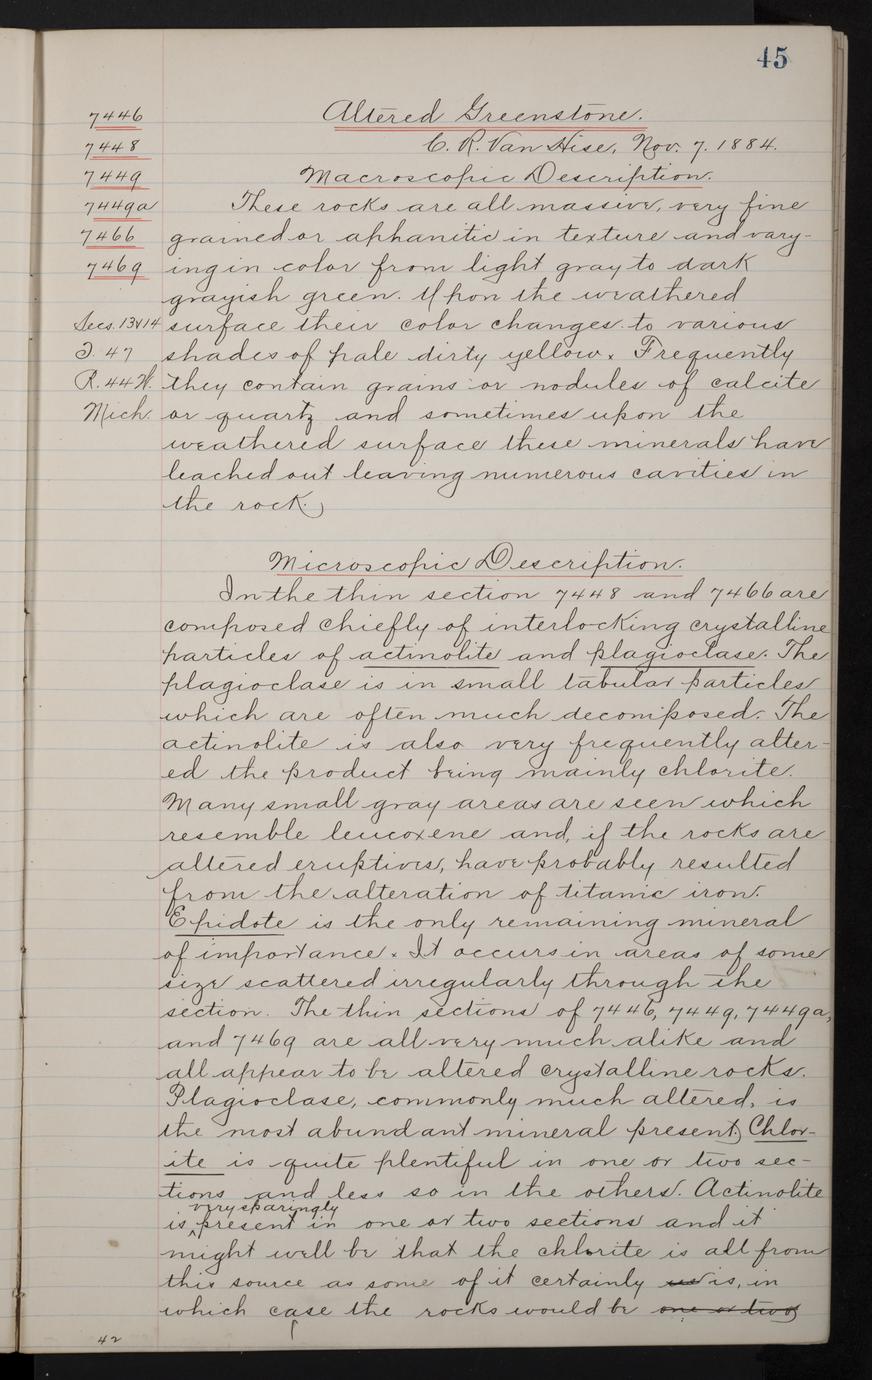 45
7446
7448
7449
7449a
7466
7469
Secs. 13&14
T. 47
R. 44W.
Mich.
Altered Greenstone.
C. R. Van Hise, Nov. 7. 1884.
Macroscopic Description.
These rocks are all massive, very fine
grained or aphanitic in texture and vary-
ing in color from light gray to dark
grayish green. Upon the weathered
surface their color changes to various
shades of pale dirty yellow. Frequently
they contain grains or nodules of calcite
or quartz and sometimes upon the
weathered surface these minerals have
leached out leaving numerous cavities in
the rock.)
Microscopic Description.
In the thin section 7448 and 7466 are
composed chiefly of interlocking crystalline
particles of actinolite and plagioclase. The
plagioclase is in small tabular particles
which are often much decomposed. The
actinolite is also very frequently alter-
ed the product being mainly chlorite.
Many small gray areas are seen which
resemble leucoxene and, if the rocks are
altered eruptives, have probably resulted
from the alteration of titanic iron.
Epidote is the only remaining mineral
of importance. It occurs in areas of some
size scattered irregularly through the
section. The thin sections of 7446, 7449, 7449a,
and 7469 are all very much alike and
all appear to be altered crystalline rocks.
Plagioclase, commonly much altered, is
the most abundant mineral present.) Chlor-
ite is quite plentiful in one or two sec-
tions and less so in the others. Actinolite
very sparingly
is ^ present in one or two sections and it
might well be that the chlorite is all from
this source as some of it certainly is, in
which case the rocks would be one or two
42